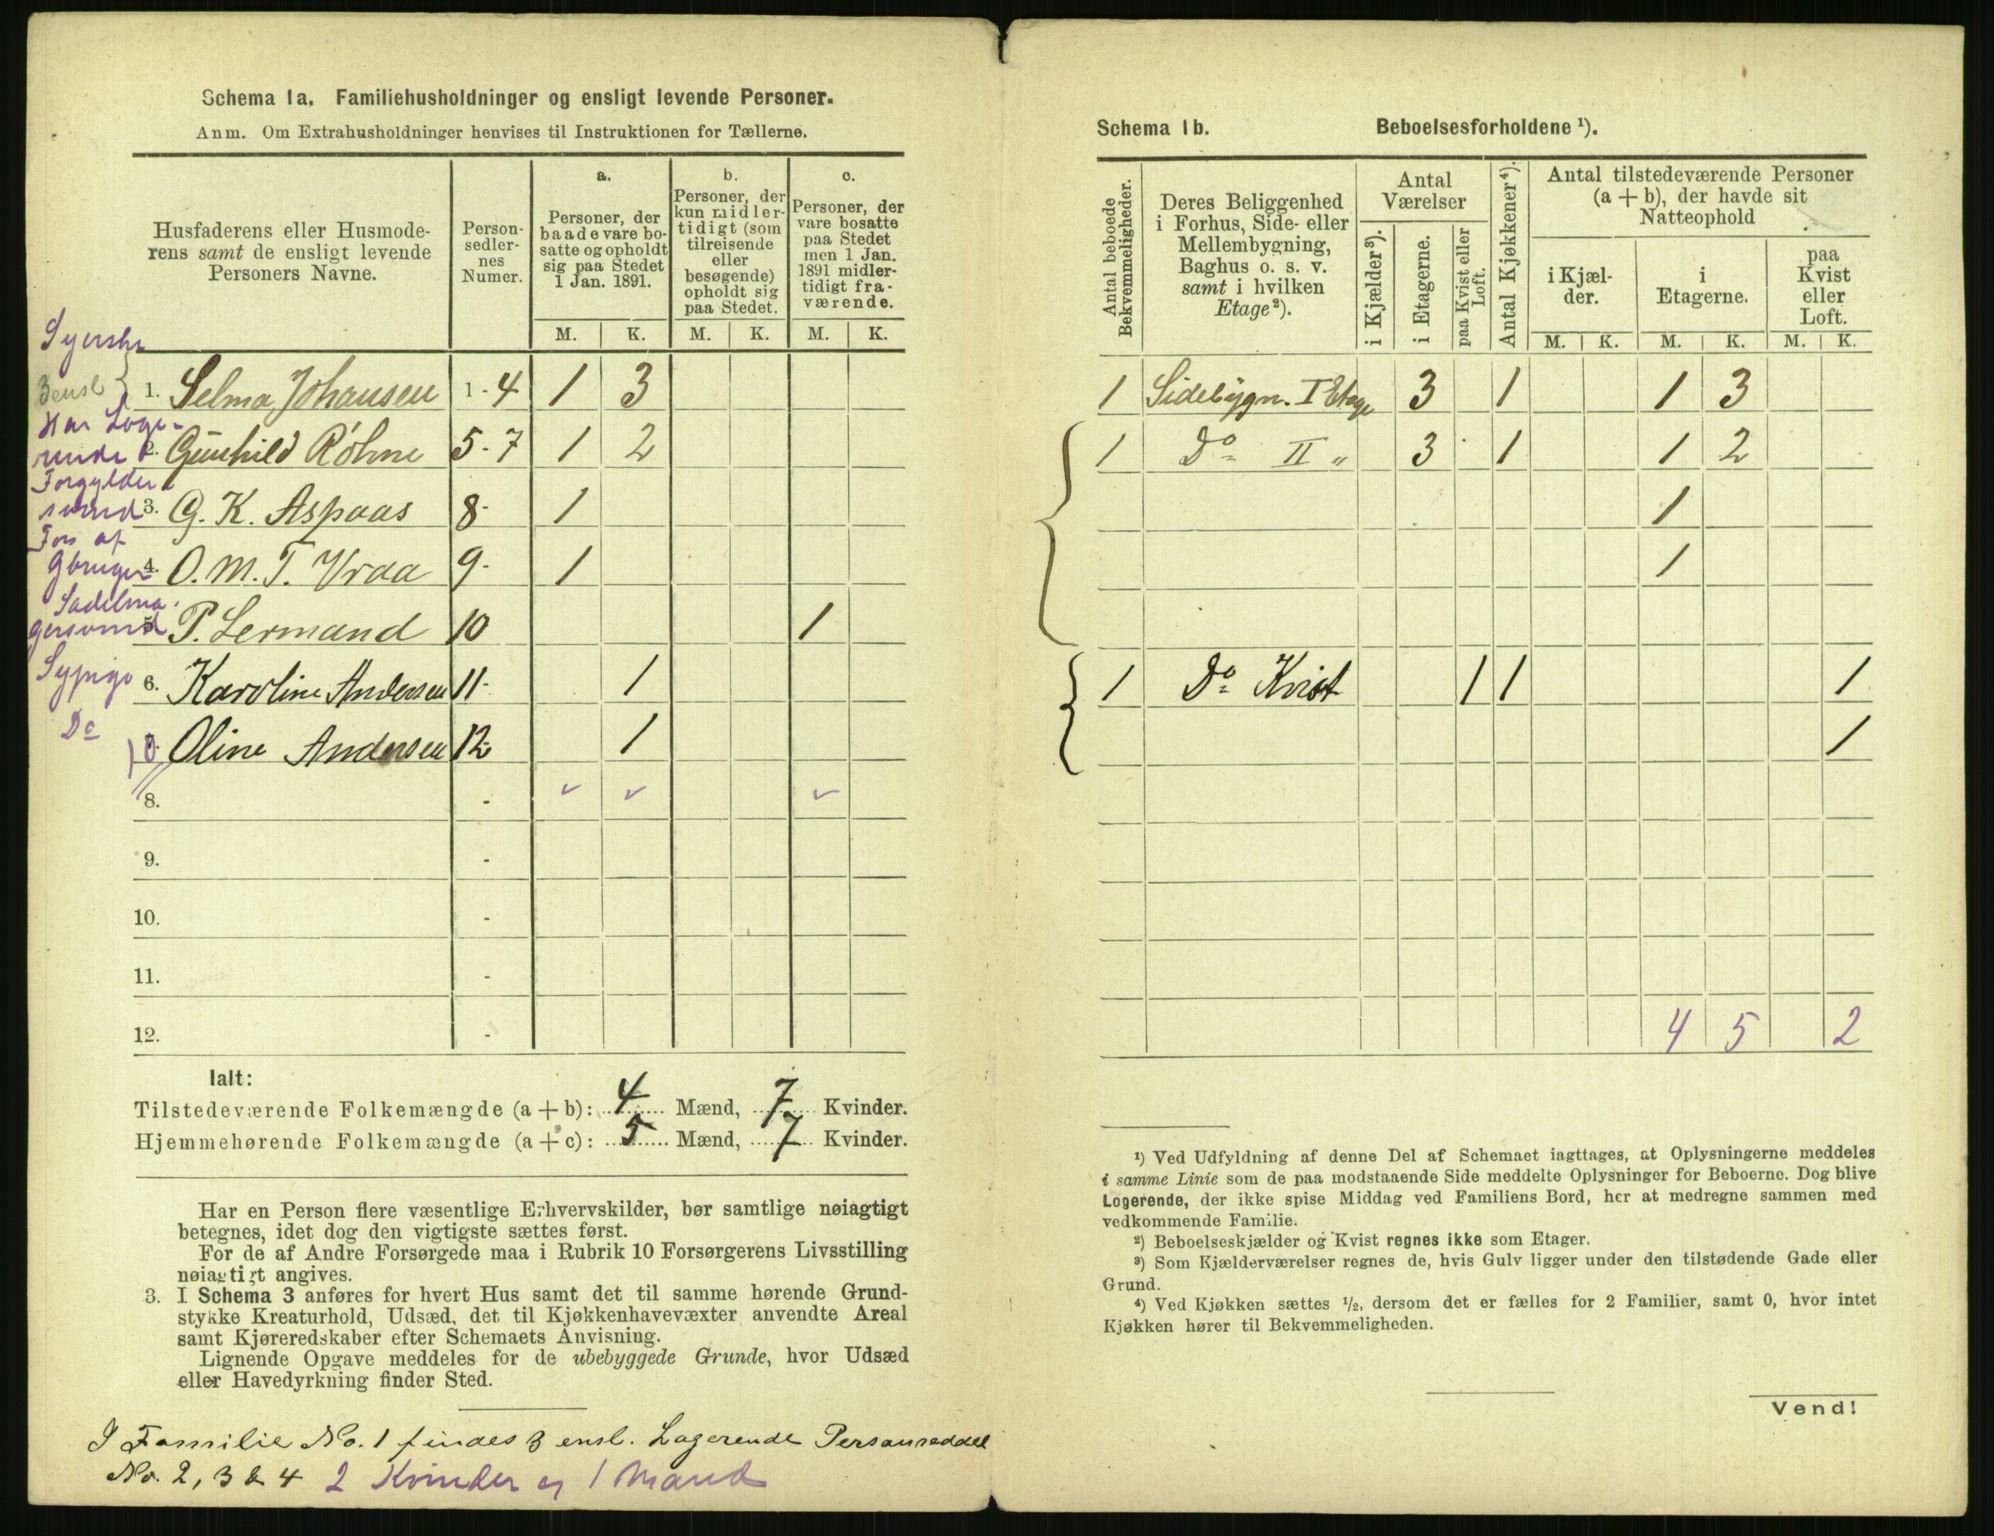 Schema 1a. Familiehusholdninger og ensligt levende Personer.
Anm. Om Extrahusholdninger henvises til Instruktionen for Tællerne.
Husfaderens eller Husmoderens samt de ensligt levende Personers Navne.
Personsedlernes Numer.
a. Personer, der baade vare bosatte og opholdt sig paa Stedet 1 Jan. 1891.
b. Personer, der kun midlertidigt (som tilreisende eller besøgende) opholdt sig paa Stedet.
c. Personer, der vare bosatte paa Stedet men 1 Jan. 1891 midlertidigt fraværende.
M. K. M. K. M. K.
Syerske
3 ensl } 1. Selma Johansen 1-4 1 3
Har Logerende 2. Gunhild Røhne 5-7 1 2
Forgylder svend 3. G. K. Aspaas 8- 1
Fors af Gbruger 4. O. M. T. Vraa 9- 1
Sadelmagersvend 5. P. Lermand 10 1
Sypige 6. Karoline Andersen 11- 1
Do Oline Andersen 12- 1
8. -
9. -
10. -
11. -
12. -
Ialt:
Tilstedeværende Folkemængde (a + b): 4 Mænd, 7 Kvinder.
Hjemmehørende Folkemængde (a + c): 5 Mænd, 7 Kvinder.
Har en Person flere væsentlige Erhvervskilder, bør samtlige nøiagtigt
betegnes, idet dog den vigtigste sættes først.
For de af Andre Forsørgede maa i Rubrik 10 Forsørgerens Livsstilling
nøiagtigt angives.
3. I Schema 3 anføres for hvert Hus samt det til samme hørende Grund-
stykke Kreaturhold, Udsæd, det til Kjøkkenhavevæxter anvendte Areal
samt Kjøreredskaber efter Schemaets Anvisning.
Lignende Opgave meddeles for de ubebyggede Grunde, hvor Udsæd
eller Havedyrkning finder Sted.
I Familie No. 1 findes 3 ensl. Logerende Personseddel
No. 2, 3 & 4 2 Kvinder og 1 Mand
Schema 1b. Beboelsesforholdene ¹).
Antal beboede Bekvemmeligheder.
Deres Beliggenhed i Forhus, Side- eller Mellembygning, Baghus o. s. v. samt i hvilken Etage ²).
Antal Værelser
i Kjælder ³).
i Etagerne.
paa Kvist eller Loft.
Antal Kjøkkener ⁴).
Antal tilstedeværende Personer (a + b), der havde sit Natteophold
i Kjælder.
i Etagerne.
paa Kvist eller Loft.
M. K. M. K. M. K.
1 Sidebygn. I Etage 3 1 1 3
1 Do II " 3 1 1 2
1
1
1 Do Kvist 1 1 1
1
4 5 2
¹) Ved Udfyldning af denne Del af Schemaet iagttages, at Oplysningerne meddeles
i samme Linie som de paa modstaaende Side meddelte Oplysninger for Beboerne. Dog blive
Logerende, der ikke spise Middag ved Familiens Bord, her at medregne sammen med
vedkommende Familie.
²) Beboelseskjælder og Kvist regnes ikke som Etager.
³) Som Kjælderværelser regnes de, hvis Gulv ligger under den tilstødende Gade eller
Grund.
⁴) Ved Kjøkken sættes ½, dersom det er fælles for 2 Familier, samt 0, hvor intet
Kjøkken hører til Bekvemmeligheden.
Vend!